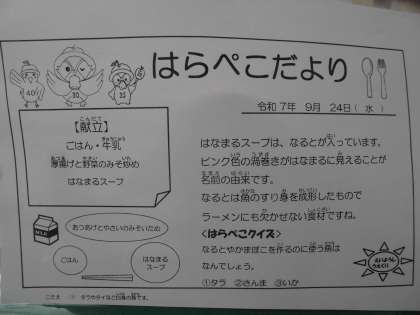 はらぺこだより
令和7年 9月 24日(水)
【献立】
ごはん・牛乳
厚揚げと野菜のみそ炒め
はなまるスープ
あつあげとやさいのみそいため
ごはん
はなまる
スープ
はなまるスープは、なるとが入っています。
ピンク色の渦巻きがはなまるに見えることが
名前の由来です。
なるとは魚のすり身を成形したもので
ラーメンにも欠かせない食材ですね。
<はらぺこクイズ>
なるとやかまぼこを作るのに使う魚は
なんでしょう。
①タラ ②さんま ③いか
こたえ ① タラやタイなど白身の魚です。